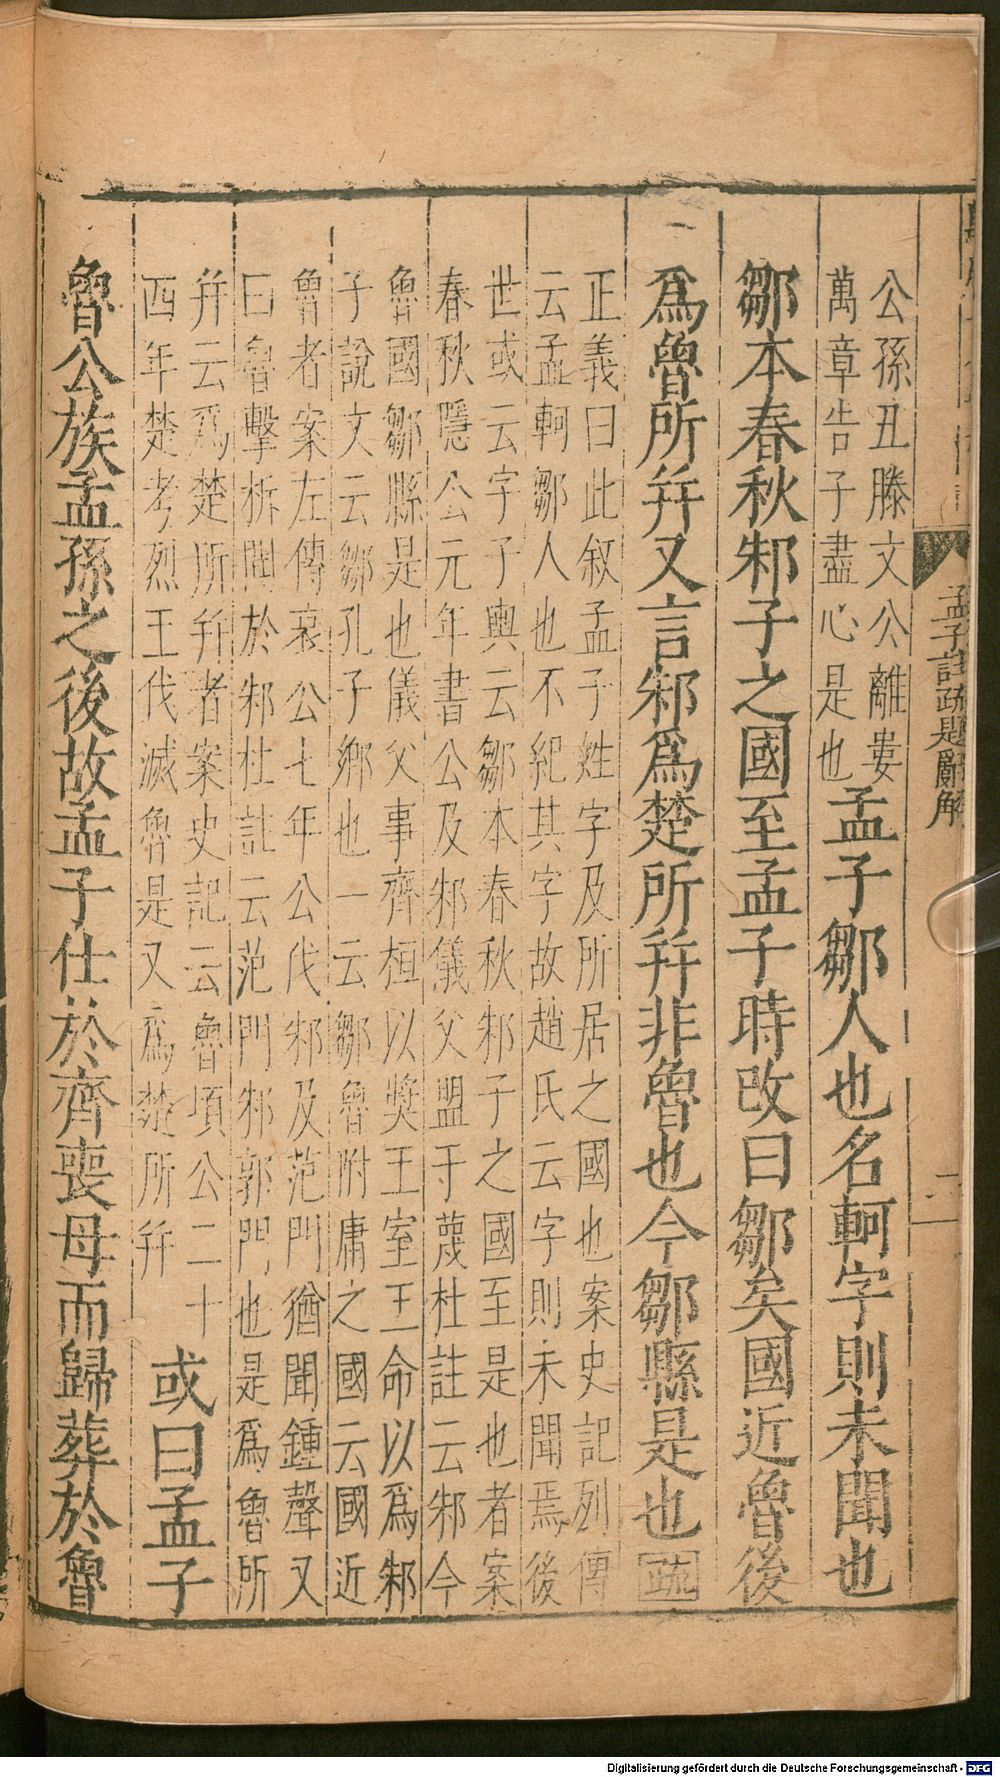 孟子註疏題辭解
二
公孫丑滕文公離婁
萬章告子盡心是也
孟子鄒人也名軻字則未聞也
鄒本春秋邾子之國至孟子時改曰鄒矣國近魯後
爲魯所并又言邾爲楚所并非魯也今鄒縣是也疏
正義曰此叙孟子姓字及所居之國也案史記列傳
云孟軻鄒人也不紀其字故趙氏云字則未聞焉後
世或云字子輿云鄒本春秋邾子之國至是也者案
春秋隱公元年書公及邾儀父盟于蔑杜註云邾今
魯國鄒縣是也儀父事齊桓以奬王室王命以爲邾
子說文云鄒孔子鄉也一云鄒魯附庸之國云國近
魯者案左傳哀公七年公伐邾及范門猶聞鍾聲又
曰魯擊柝聞於邾杜註云范門邾郭門也是爲魯所
并云爲楚所并者案史記云魯頃公二十
四年楚考烈王伐滅魯是又爲楚所并
或曰孟子
魯公族孟孫之後故孟子仕於齊喪母而歸葬於魯
Digitalisierung gefördert durch die Deutsche Forschungsgemeinschaft - DFG